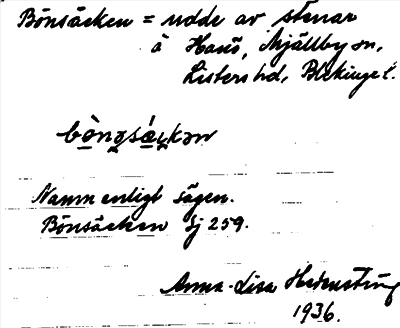 Bönsäcken = udde av stenar
å Hanö, Mjällby sn,
Listers hd, Blekinge l.
bònsäckən
Namn enligt sägen.
Bönsäcken Sj 259.
Anna-Lisa Hedenstrüg
1936.